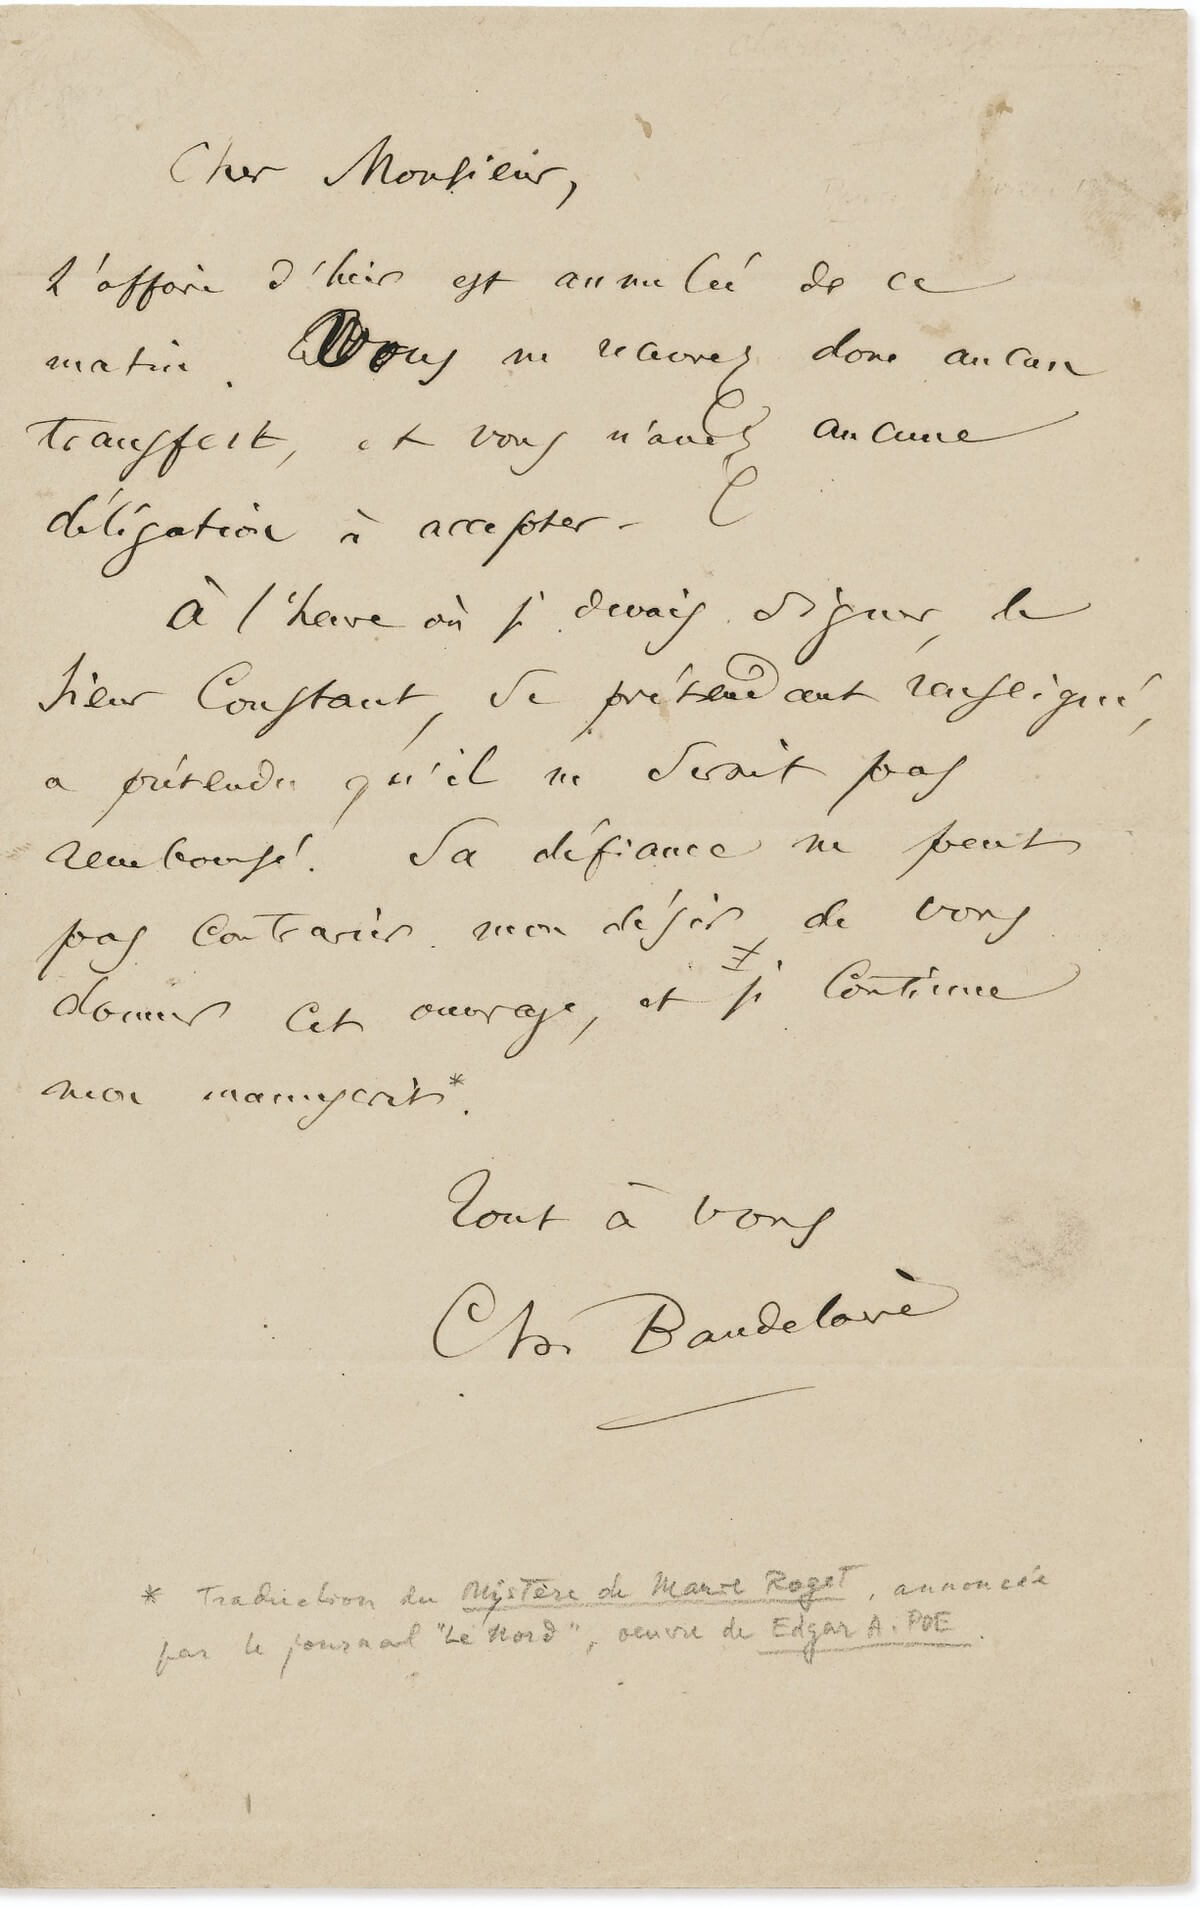 Cher Monsieur,
L'affaire d'hier est annulée de ce
matin. Vous ne recevrez donc aucun
transfert, et vous n'avez aucune
délégation à accepter.
À l'heure où je devais signer, le
sieur Constant, se prétendant renseigné,
a prétendu qu'il ne serait pas
remboursé. Sa défiance ne peut
pas contrarier mon désir de vous
donner cet ouvrage, et je continue
mon manuscrit*.
Tout à vous
Ch. Baudelaire
* Traduction du Mystère de Marie Roget, annoncée
par le journal "Le Nord", oeuvre de Edgar A. POE.